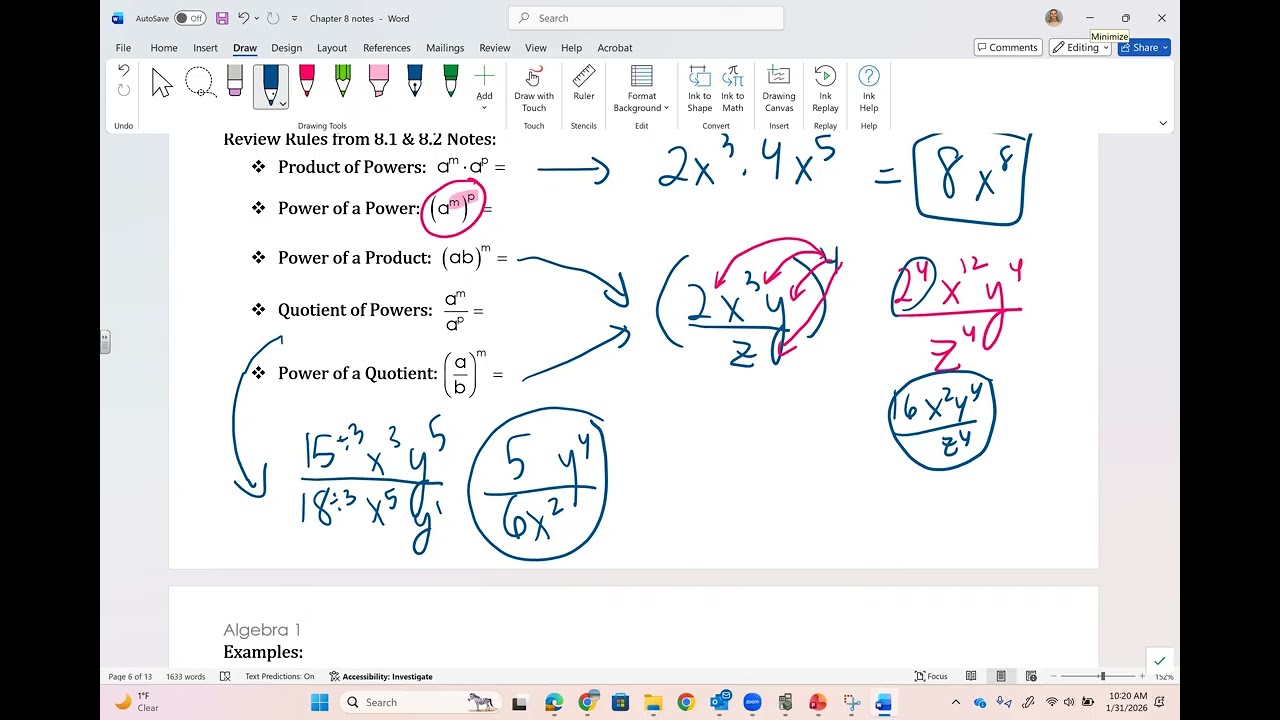 AutoSave Off Chapter 8 notes - Word Search
Minimize
File Home Insert Draw Design Layout References Mailings Review View Help Acrobat Comments Editing Share
Add Draw with Touch Ruler Format Background Ink to Shape Ink to Math Drawing Canvas Ink Replay Ink Help
Undo Drawing Tools Touch Stencils Edit Convert Insert Replay Help
Review Rules from 8.1 & 8.2 Notes:
❖ Product of Powers: a^m · a^p = → 2x^3 · 4x^5 = 8x^8
❖ Power of a Power: (a^m)^p =
❖ Power of a Product: (ab)^m =
(2x^3y / z)^4 2^4 x^12 y^4 / z^4
❖ Quotient of Powers: a^m / a^p =
❖ Power of a Quotient: (a / b)^m =
16x^2y^4 / z^4
15÷3 x^3 y^5 / 18÷3 x^5 y^1 5 y^4 / 6x^2
Algebra 1
Examples:
Page 6 of 13 1633 words Text Predictions: On Accessibility: Investigate Focus 152%
1°F
Clear
Search
zoom
10:20 AM
1/31/2026